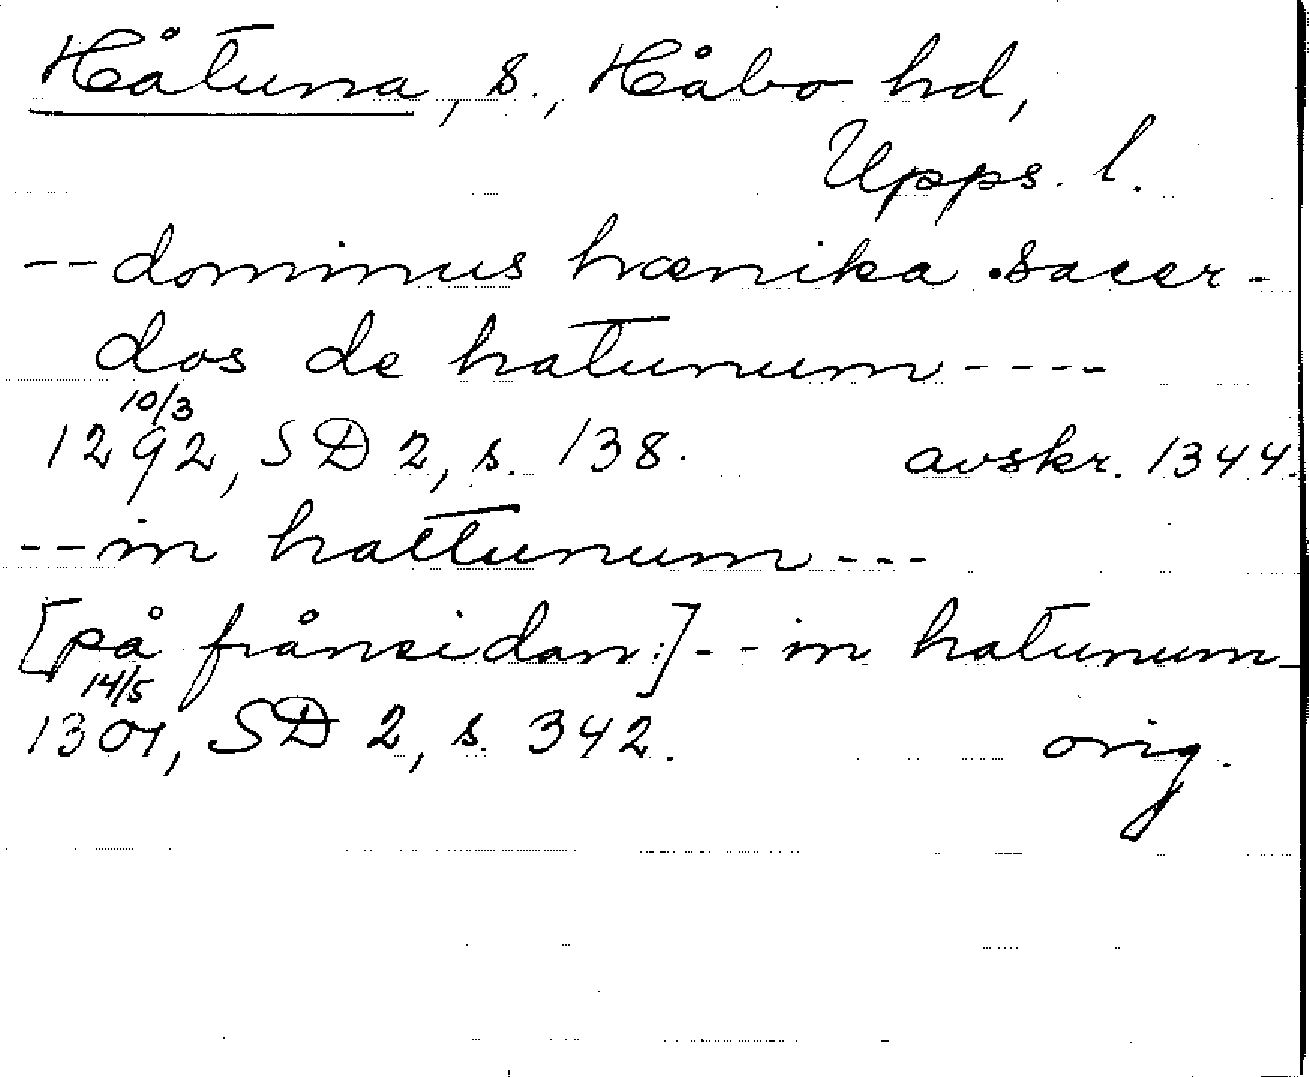 Håtuna, s., Håbo hd,
Upps. l.
-- dominus hænika sacer-
dos de hatunum ----
10/3
1292, SD 2, s. 138. avskr. 1344.
-- in hattunum ---
[på frånsidan:] -- in hatunum
14/5
1301, SD 2, s. 342. orig.